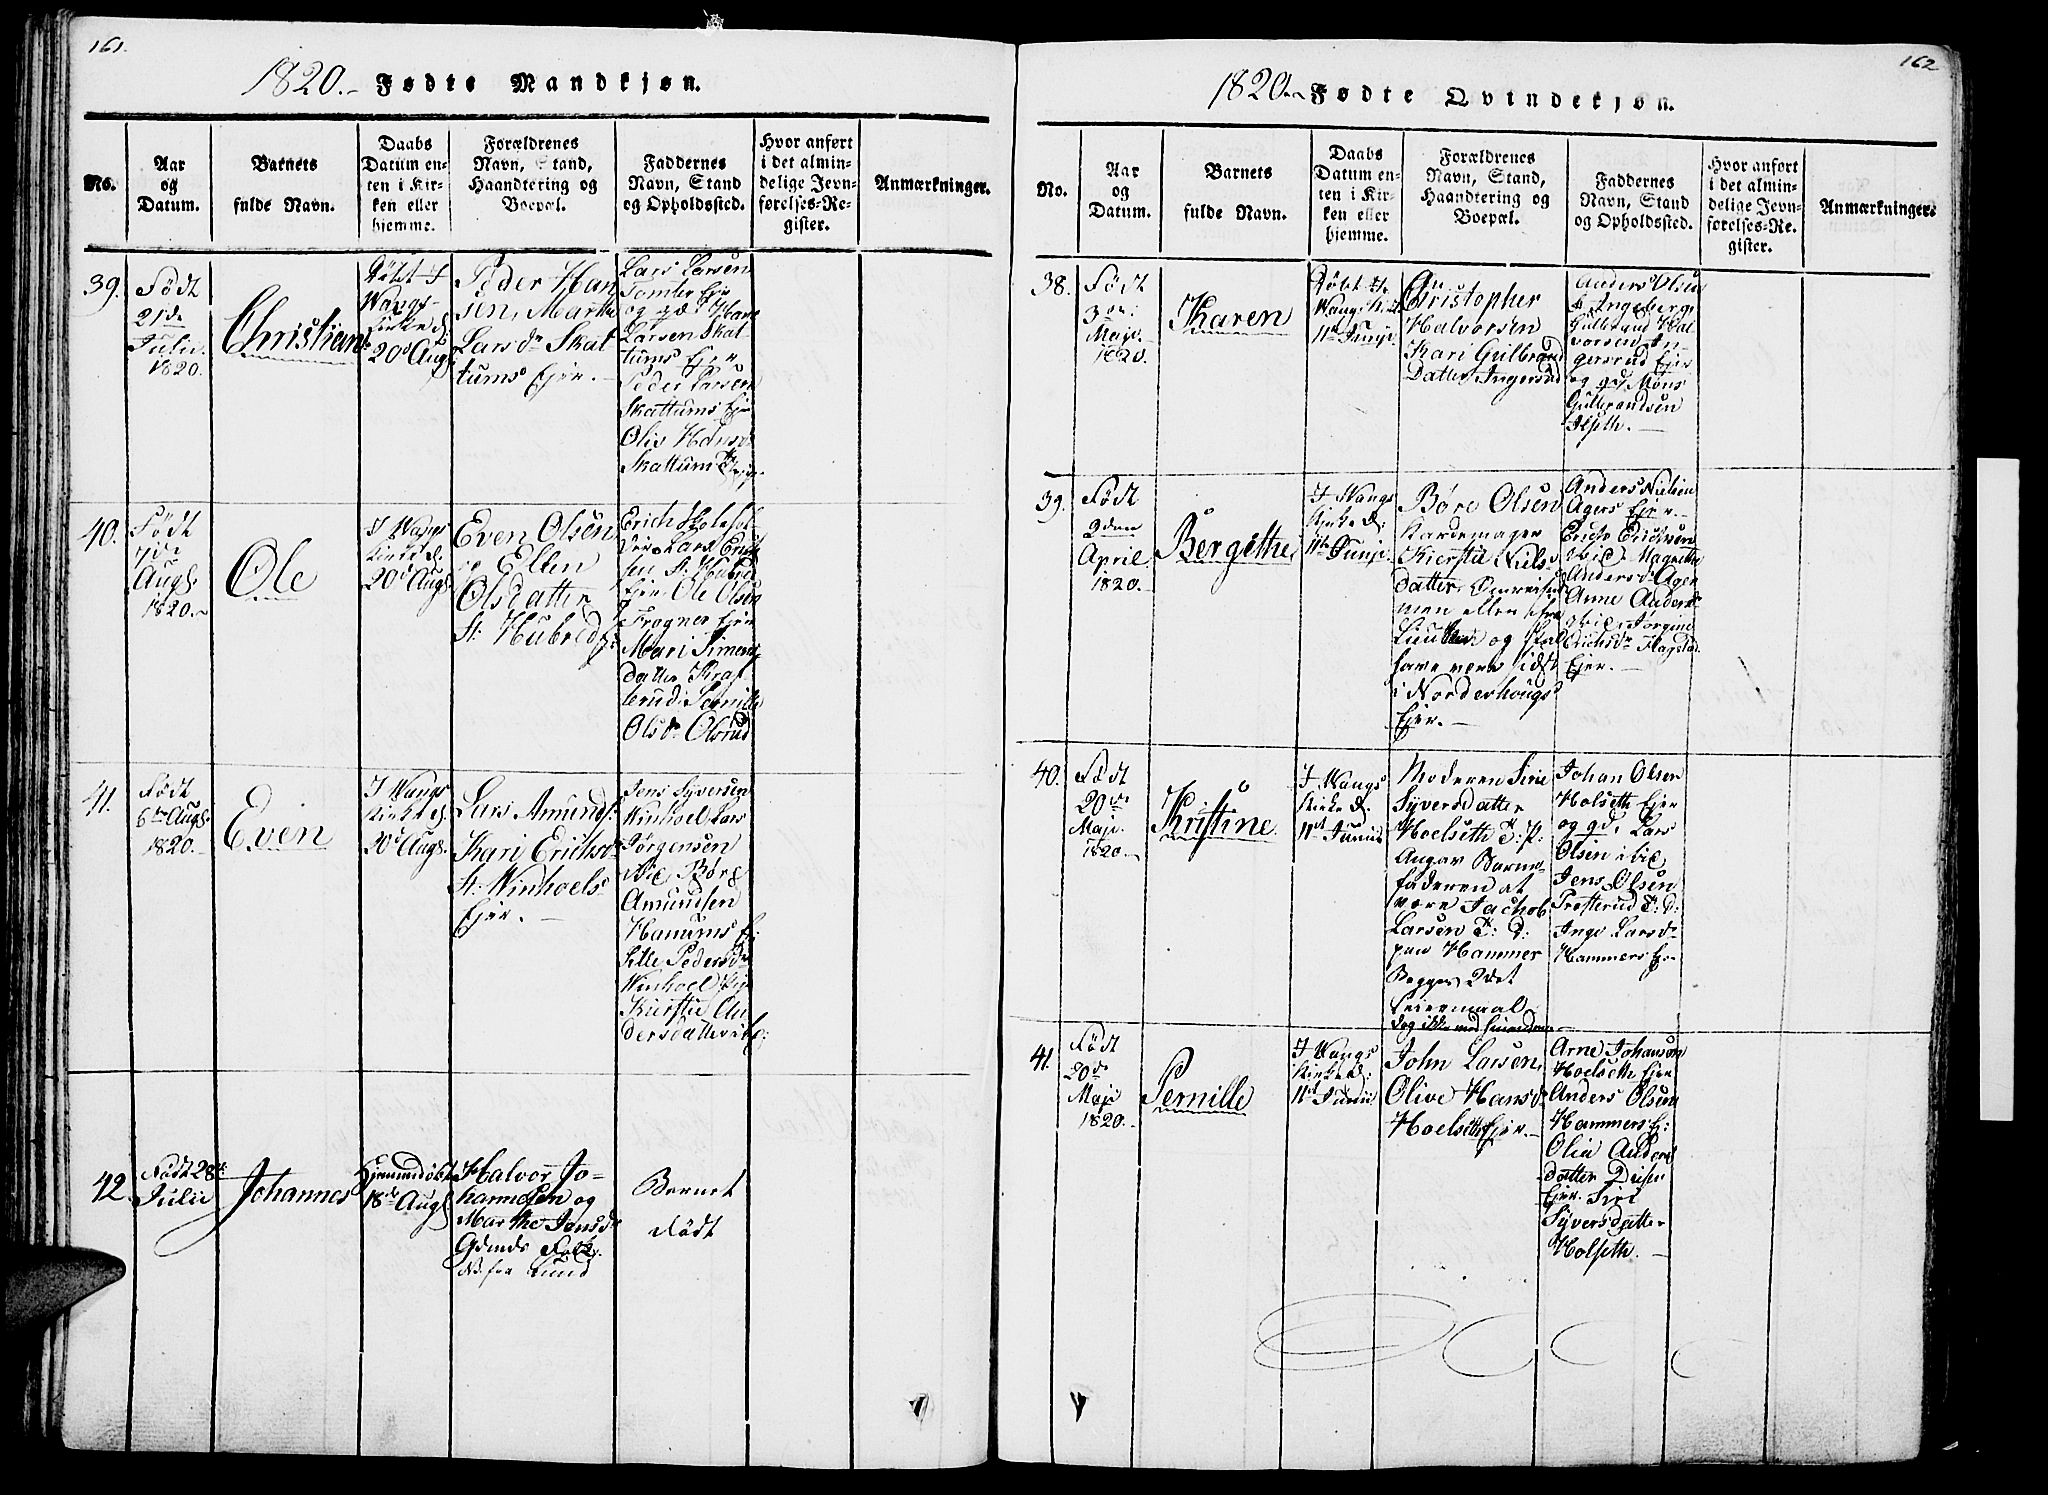 161.
1820.- Fødte Mandkjøn.
No.
Aar
og
Datum.
Barnets
fulde Navn.
Daabs
Datum en-
ten i Kir-
ken eller
hjemme.
Forældrenes
Navn, Stand,
Haandtering og
Boepæl.
Faddernes
Navn, Stand
og Opholdssted.
Hvor anført
i det almin-
delige Jevn-
førelses-Re-
gister.
Anmærkninger.
39.
Født
21de
Julii.
1820.
Christian
Døbt I
Wangs
Kirke d.
20d Augs.
Peder Han
sen, Marthe
Lars dr Skat
tums Ejer.
Lars Larsen
Tomter Ejer
og gd. Hans
Larsen Skat-
tums Ejer
Peder Larsen
Skattums Ejer
Olia Hansdr
Skattum
40.
Født
7de
Augs.
1820.
Ole
I Wangs
Kirke d.
20d Augs.
Even Olsen
Ellen
Olsdatter
St. Hubred
Erich
Lars Erich
sen St. Hubred
Ejer. Ole Olsen
Frogner Ejer
Mari Simens
datter Kraf-
terud. Pernille
Olsdr Olsrud
41.
Født
6te Augs.
1820.
Even
I Wangs
Kirke d.
20d Augs.
Lars Amunds.
Kari Erichsdr
St. Winhoels
Ejer.
Jens Syversen
Winhoel Lars
Jørgensen
ibid. Børe
Amundsen
Hanums Ej.
Sille Pedersdr
Winhoel
Kiersti An
dersdatter ibd.
42.
Født 28de
Julii
Johannes
Hjemmedøbt
18de Augs
Halvor Jo-
hannesen og
Marthe Jensdr
Gdmds Folk
fra Lund
Barnet
dødt
162
1820 Fødte Qvindekjøn.
No.
Aar
og
Datum.
Barnets
fulde Navn.
Daabs
Datum en-
ten i Kir-
ken eller
hjemme.
Forældrenes
Navn, Stand,
Haandtering og
Boepæl.
Faddernes
Navn, Stand
og Opholdssted.
Hvor anført
i det almin-
delige Jevn-
førelses-Re-
gister.
Anmærkninger.
38.
Født
3die
Maji.
1820.
Karen
Døbt I
Wangs K. d.
11te Junji.
Christopher
Halvorsen
Kari Gulbrand
Datter Ingersrud
Anders Olsen
Ingeberg
Gulbrand Hal
vorsen In-
gersrud Ejer
og gd. Mons
Gulbrandsen
Ilseth.
39.
Født
2den
April
1820.
Bergithe
I Wangs
Kirke d.
11te Junji.
Børe Olsen
Kardemager
Kiersti Niels
datter
men eller fra
og skal
have været sidst
i Norderhougs
Ejer.
Anders Nielsen
Agers Ejer.
Erich Erichsen
ibid. Magrethe
Andersdr Ager
Anne Andersdr
ibid. Jorgine
Erichsdr Flagstad
Ejer.
40.
Født
20de
Maji.
1820.
Kristine
I Wangs
Kirke d.
11d Junii
Moderen Sirie
Syversdatter
Hoelseth T: P:
Angav Barne-
faderen at
være Jachob
Larsen T: D:
paa Hammer
Begges 2det
Leiermaal
dog ikke med hinanden
Johan Olsen
Holseth Ejer
og gd. Lars
Olsen ibid.
Jens Olsen
Prosterud T: D:
Inge Larsdr
Hammers Ejer
41.
Født
20de
Maji
1820.
Pernille
I Wangs
Kirke d:
11d Junii
John Larsen,
Olive Hansdr
Hoelseth Ejer.
Arne Johansen
Hoelseth Ejer
Anders Olsen
Hammers Ej:
Olia Anders
datter Disen
Ejer. Siri
Syversdatter
Holseth.